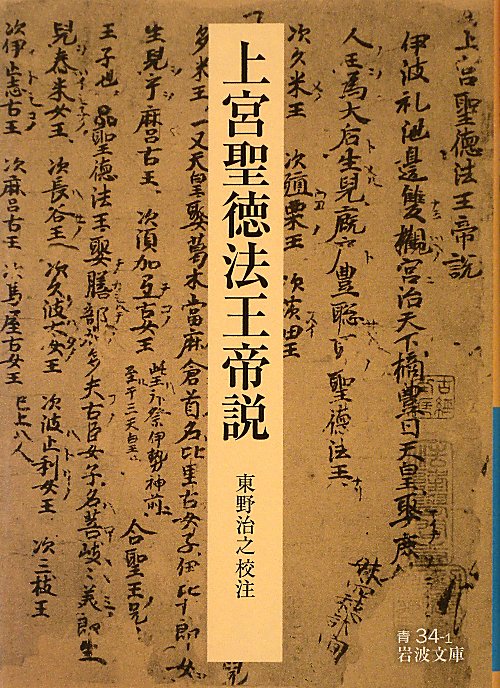 上宮聖徳法王帝説
伊波礼池邊雙槻宮治天下橘豊日天皇娶庶
人王為大后生兒厩戸豊聡耳聖徳法王
次久米王 次殖栗王 次茨田王
上宮聖徳法王帝説
東野治之校注
多米王 又天皇娶葛木當麻倉首名比里古女子伊比古郎女
生兒乎麻呂古王 次須加弖古女王 此王拝祭伊勢神前
至于三天皇也 合聖王兄
王子也 聖徳法王娶膳部加多夫古臣女子名菩岐々美郎女生
兒舂米女王 次長谷王 次久波太女王 次波止利女王 次三枝王
次伊止志古王 次麻呂古王 次馬屋古女王 已上八人
青 34-1
岩波文庫